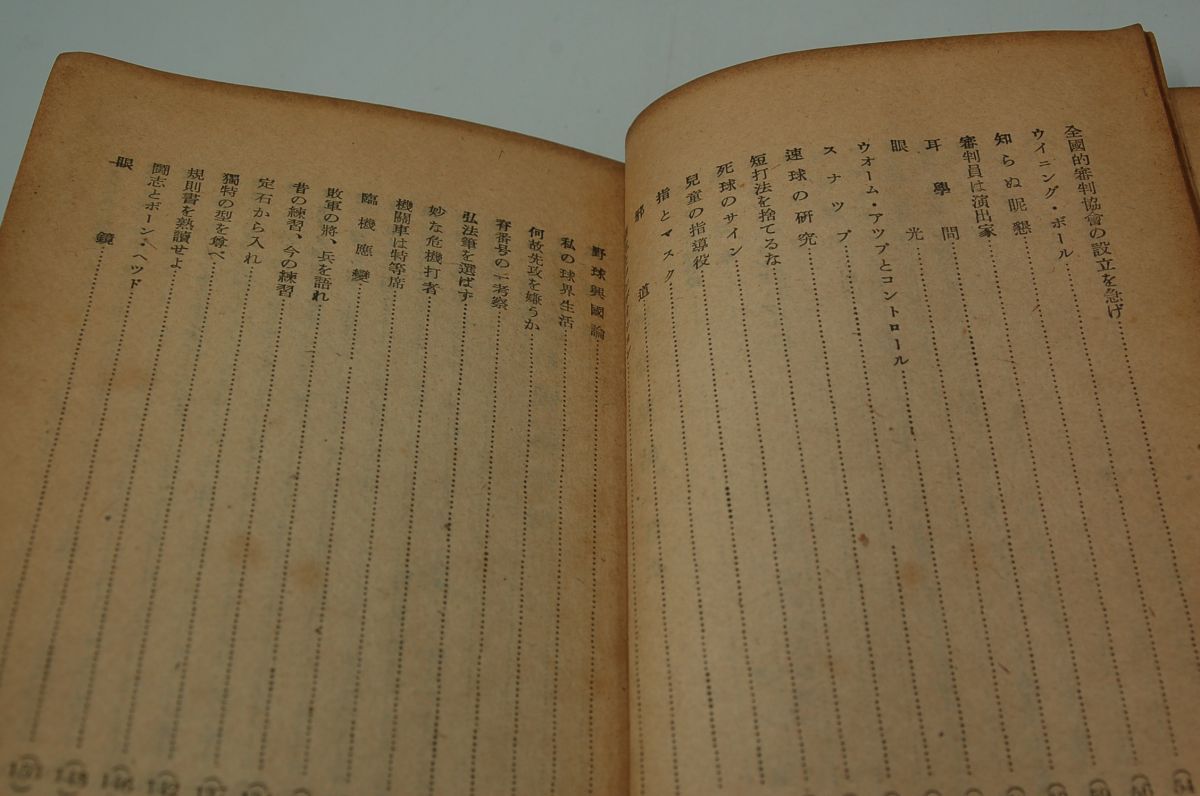 全國的審判協會の設立を急げ
ウイニング・ボール
知らぬ昵懇
審判員は演出家
耳學問
眼光
ウオーム・アツプとコントロール
スナツプ
速球の研究
短打法を捨てるな
死球のサイン
兒童の指導役
指とマスク
邪道
野球興國論
私の球界生活
何故先攻を嫌うか
背番号の一考察
弘法筆を選ばず
妙な危機打者
機關車は特等席
臨機應變
敗軍の將、兵を語れ
昔の練習、今の練習
定石から入れ
獨特の型を尊べ
規則書を熟讀せよ
闘志とボーン・ヘツド
眼鏡
148
146